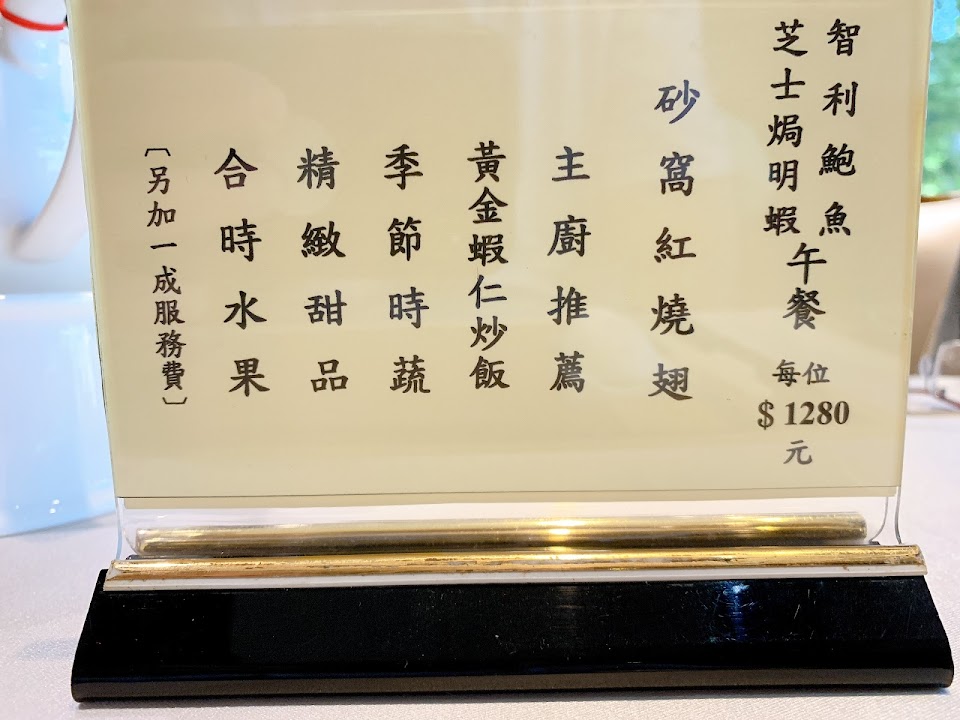 智利鮑魚
芝士焗明蝦
午餐
每位
$1280
元
砂窩紅燒翅
主廚推薦
黃金蝦仁炒飯
季節時蔬
精緻甜品
合時水果
〔另加一成服務費〕